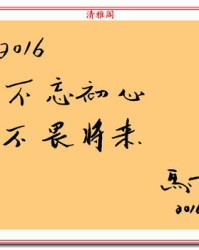 清雅阁
2016
不忘初心
不畏将来
馬
2016